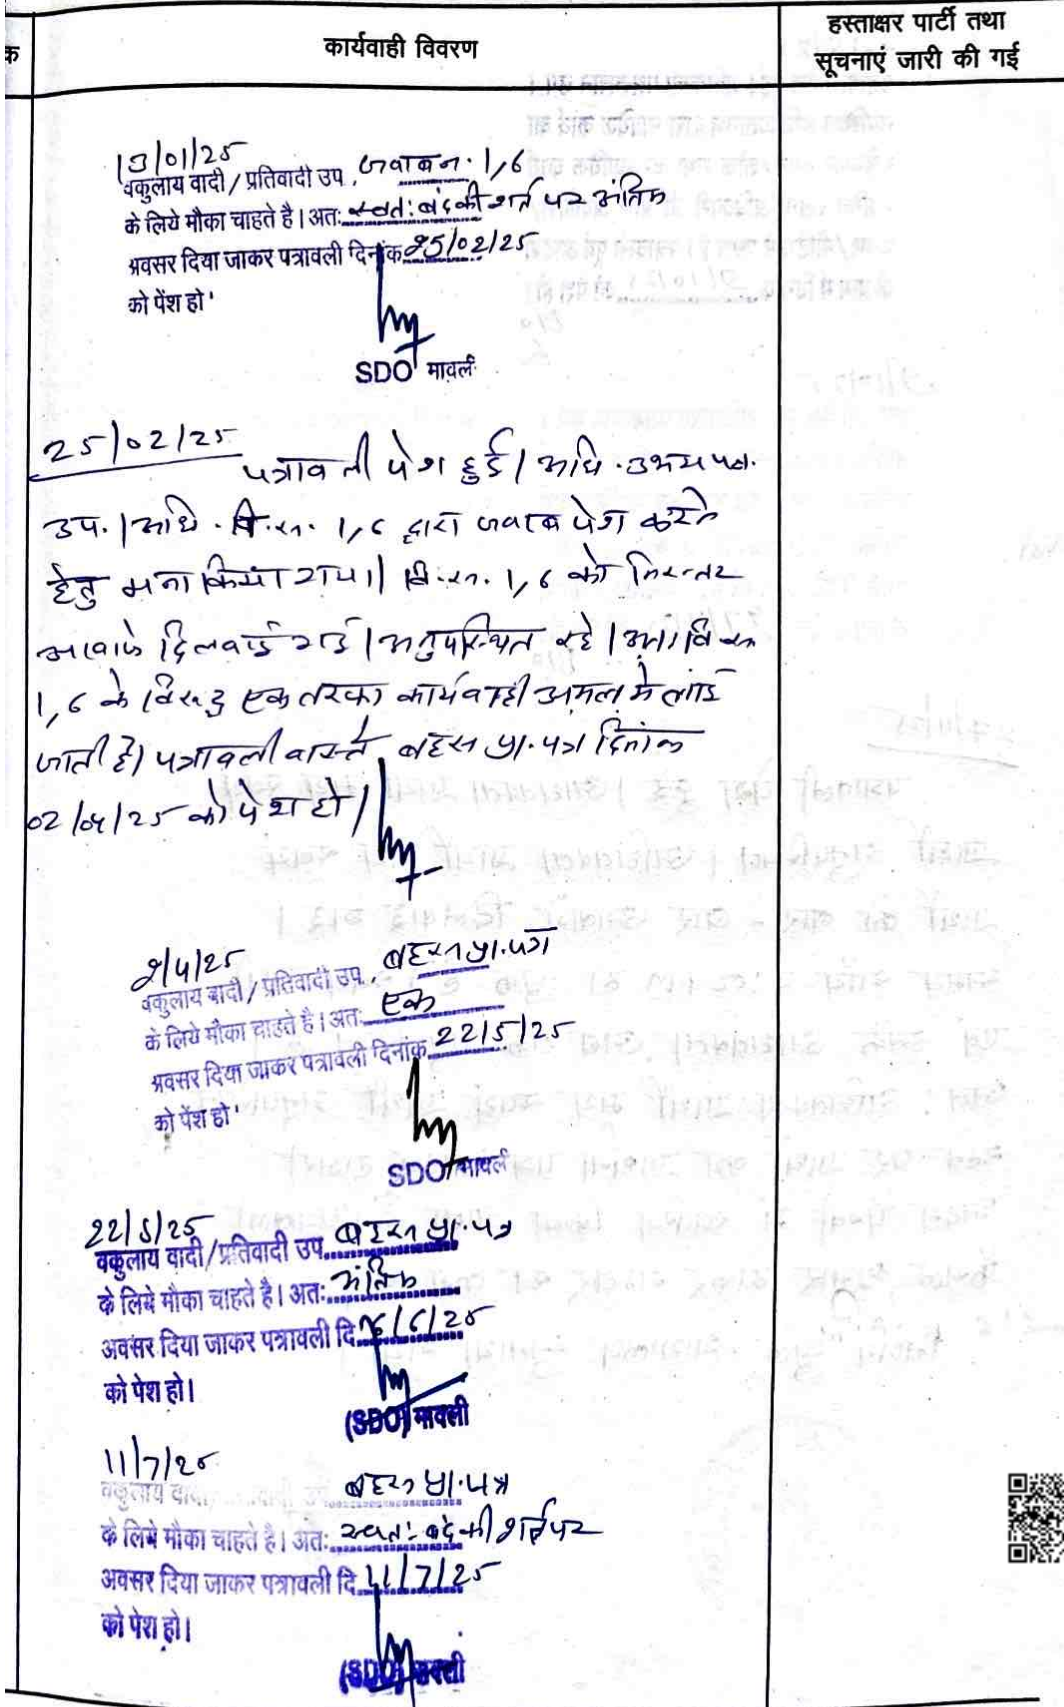 क
कार्यवाही विवरण
हस्ताक्षर पार्टी तथा
सूचनाएं जारी की गई
13/01/25
वकुलाय वादी / प्रतिवादी उप. जवाबन. 1,6
के लिये मौका चाहते है। अतः स्वतः बंद की शर्त पर अंतिम
अवसर दिया जाकर पत्रावली दिनांक 25/02/25
को पेंश हो
SDO मावली
25/02/25
पत्रावली पेश हुई। अधि. उभयपक्ष.
उप.। अधि. वि.सं. 1,6 द्वारा जवाब पेश करने
हेतु मना किया गया। वि.सं. 1,6 को निरन्तर
आवाजे दिलवाई गई। अनुपस्थित रहे। अतः वि सं
1,6 के विरूद्ध एक तरफा कार्यवाही अमल मे लाई
जाती है। पत्रावली वास्ते बहस प्रा.पत्र दिनांक
02/04/25 को पेश हो।
2/4/25
वकुलाय वादी / प्रतिवादी उप. बहस प्रा.पत्र
के लिये मौका चाहते है। अतः एक
अवसर दिया जाकर पत्रावली दिनांक 22/5/25
को पेंश हो
SDO मावली
22/5/25
वकुलाय वादी/प्रतिवादी उप. बहस प्रा.पत्र
के लिये मौका चाहते है। अतः अंतिम
अवसर दिया जाकर पत्रावली दि. /6/25
को पेश हो।
(SDO) मावली
11/7/25
वकुलाय वादी बहस प्रा.पत्र
के लिये मौका चाहते है। अतः स्वतः बंद की शर्त पर
अवसर दिया जाकर पत्रावली दि. 11/7/25
को पेश हो।
(SDO) मावली